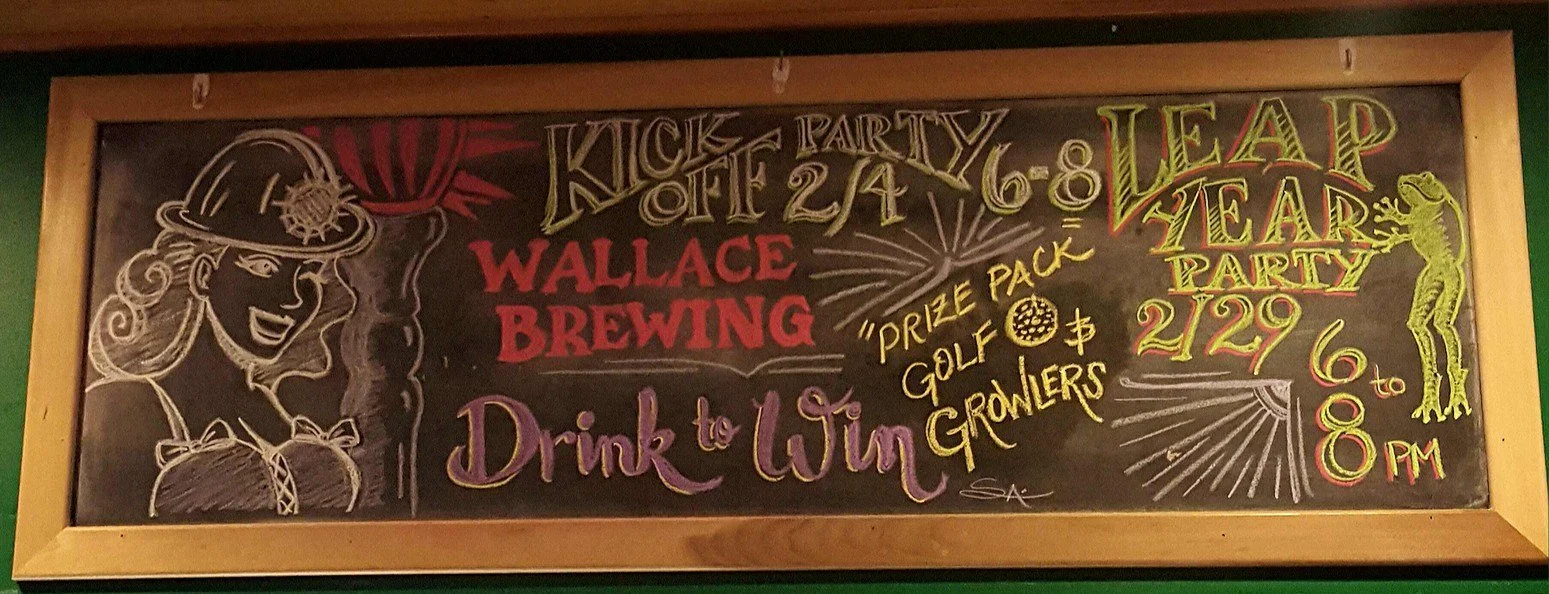 KICK OFF PARTY 2/4 6-8
WALLACE
BREWING
Drink to Win
"PRIZE PACK
GOLF &
GROWLERS
SA.
LEAP
YEAR
PARTY
2/29 6 to 8 PM